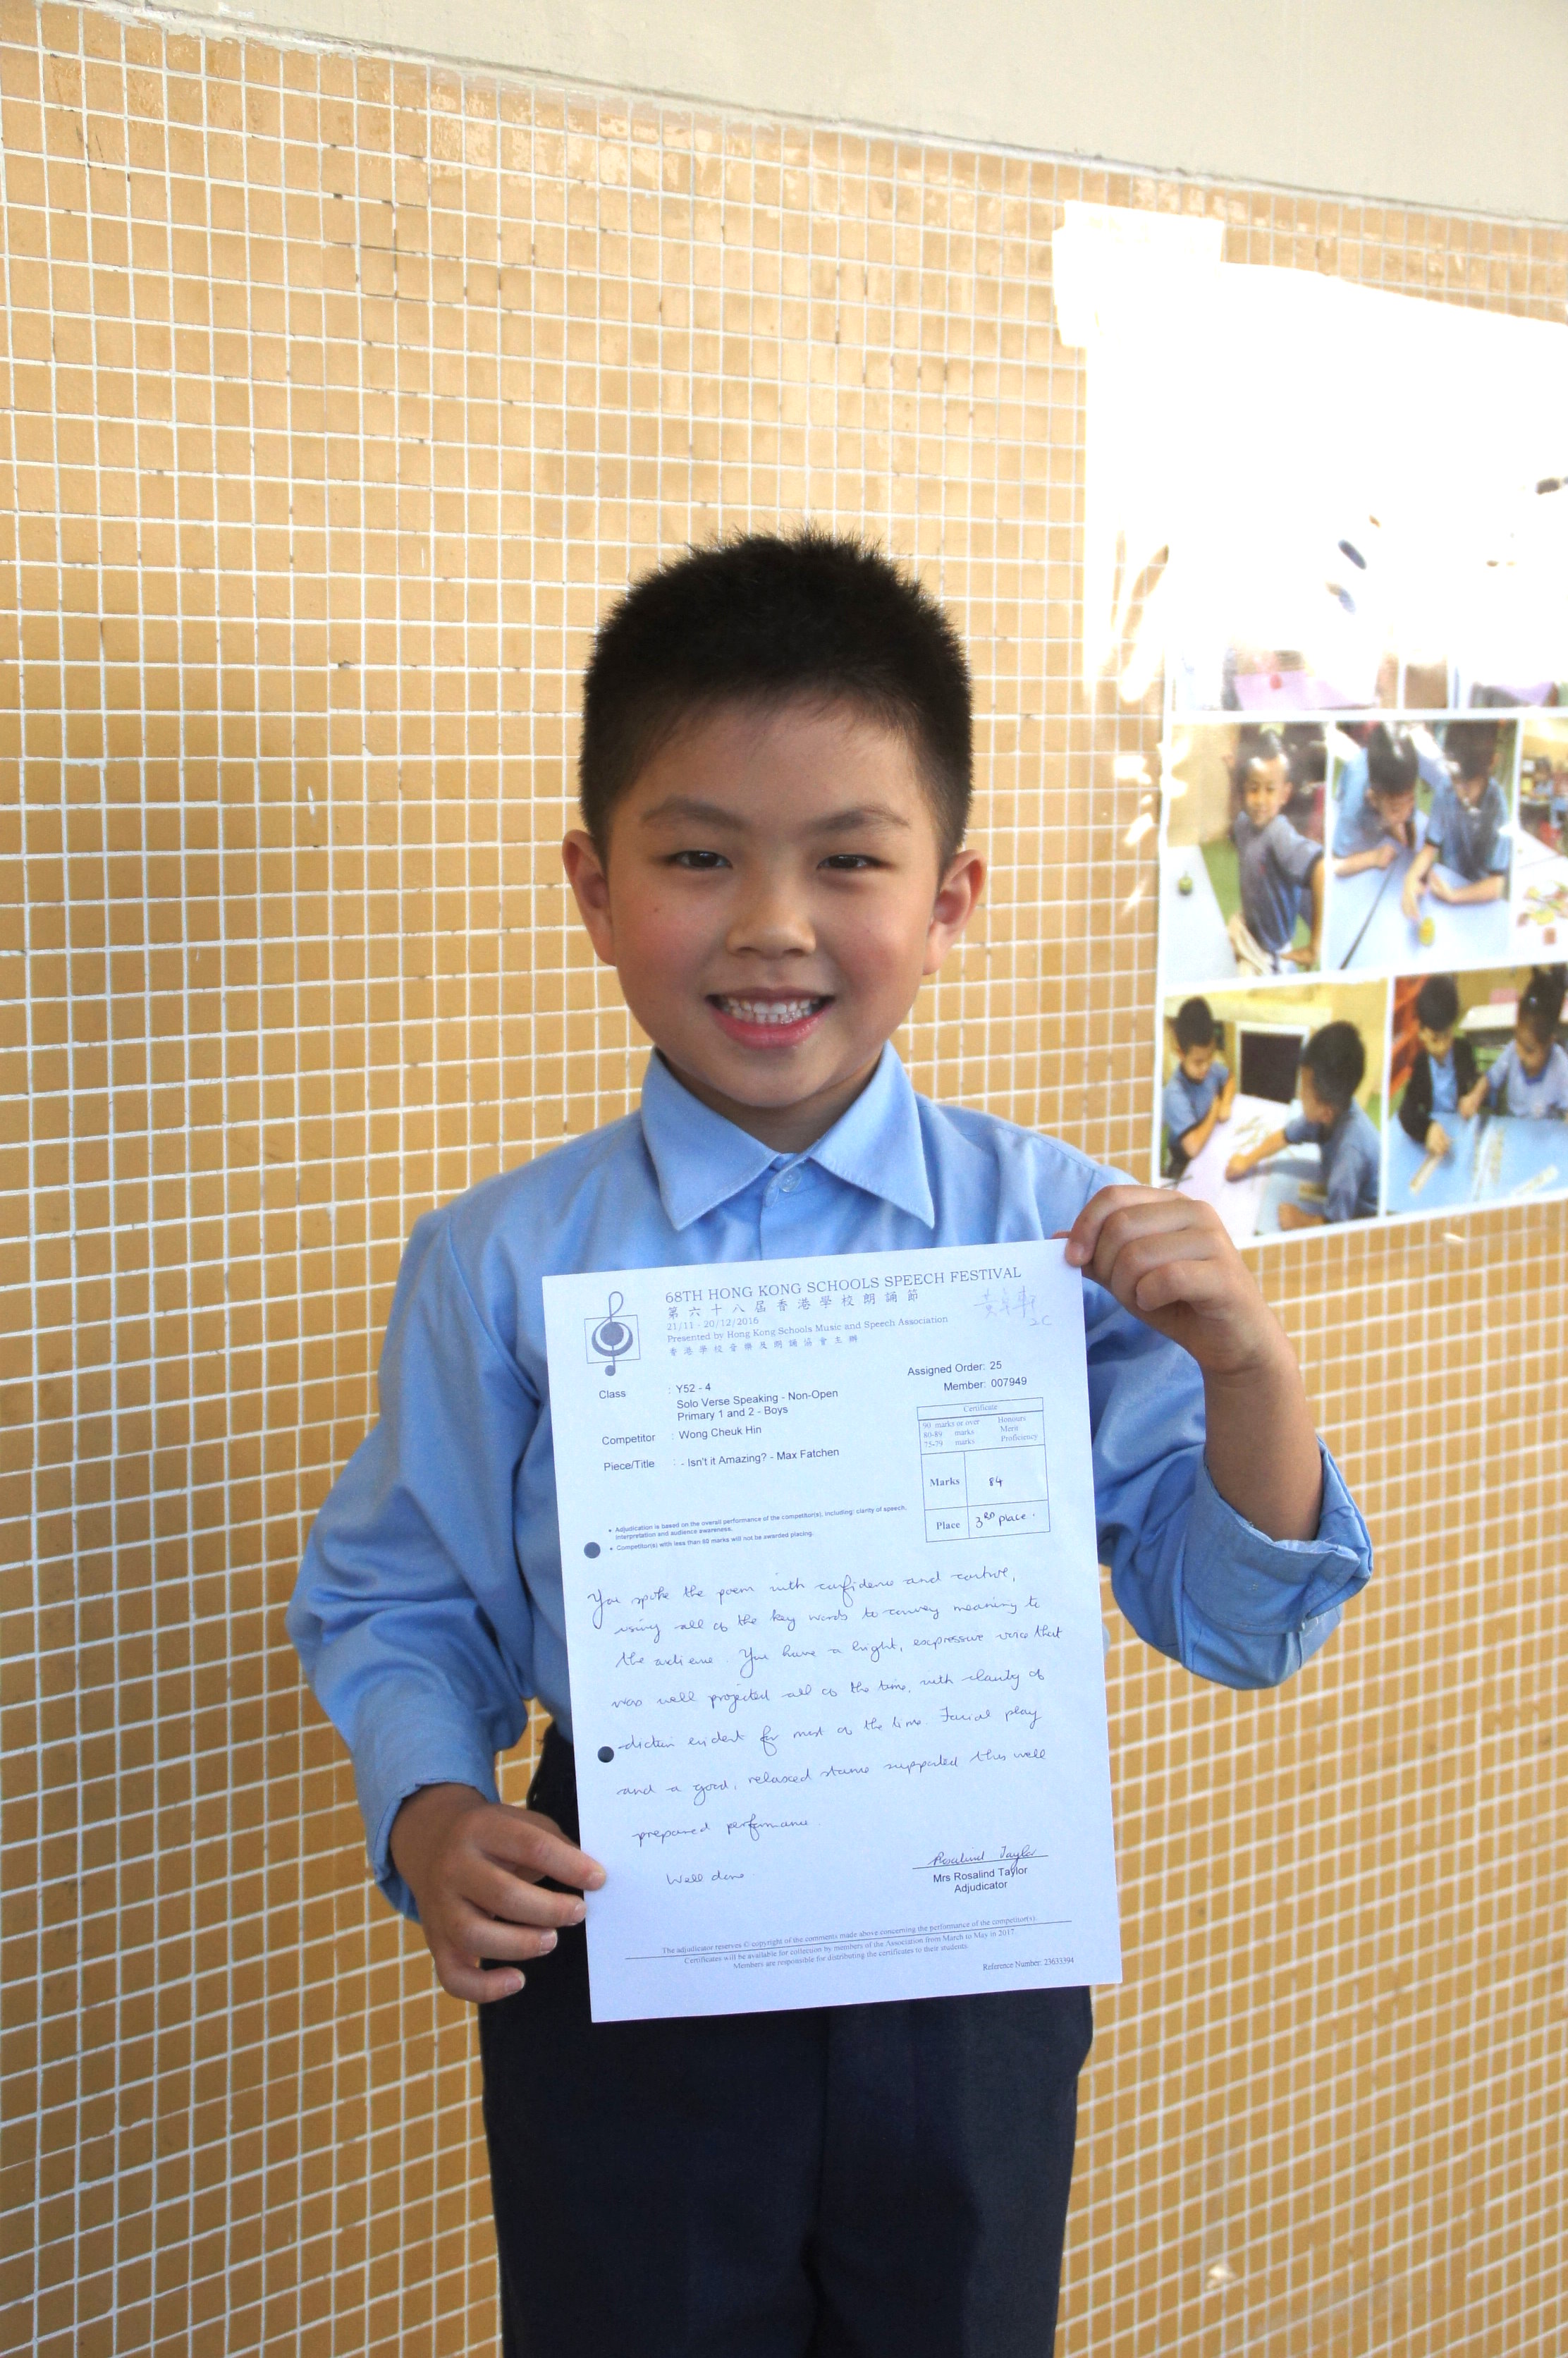 68TH HONG KONG SCHOOLS SPEECH FESTIVAL
第六十八屆香港學校朗誦節
21/11 - 20/12/2016
Presented by Hong Kong Schools Music and Speech Association
香港學校音樂及朗誦協會主辦
2C
Assigned Order: 25
Member: 007949
Class : Y52 - 4
Solo Verse Speaking - Non-Open
Primary 1 and 2 - Boys
Competitor : Wong Cheuk Hin
Piece/Title : - Isn't it Amazing? - Max Fatchen
Certificate
90 marks or over Honours
80-89 marks Merit
75-79 marks Proficiency
Marks 84
Place 3RD place.
• Adjudication is based on the overall performance of the competitor(s), including: clarity of speech,
interpretation and audience awareness.
• Competitor(s) with less than 80 marks will not be awarded placing.
You spoke the poem with confidence and control,
using all of the key words to convey meaning to
the audience. You have a bright, expressive voice that
was well projected all of the time, with clarity of
diction evident for most of the time. Facial play
and a good, relaxed stance supported this well
prepared performance.
Well done
Rosalind Taylor
Mrs Rosalind Taylor
Adjudicator
The adjudicator reserves © copyright of the comments made above concerning the performance of the competitor(s).
Certificates will be available for collection by members of the Association from March to May in 2017.
Members are responsible for distributing the certificates to their students.
Reference Number: 23633394